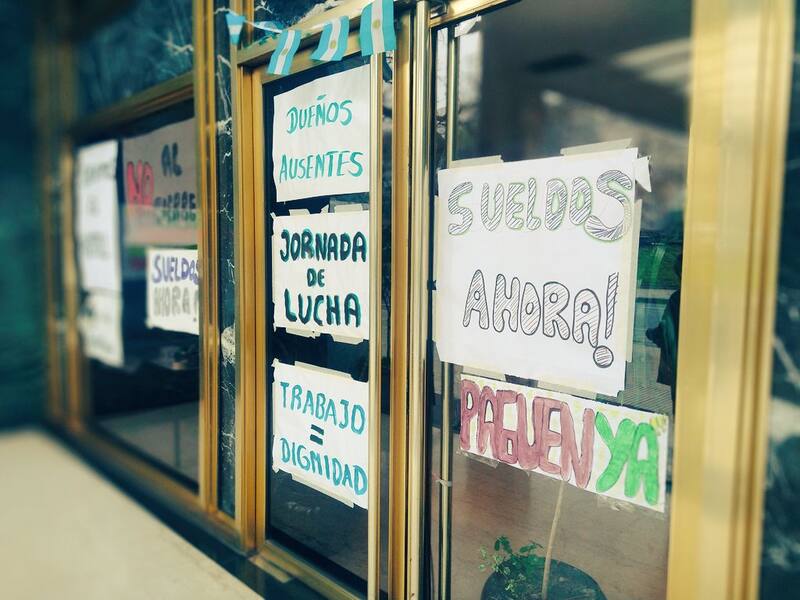 NO AL
SUELDOS
AHORA!
DUEÑOS
AUSENTES
JORNADA
DE
LUCHA
TRABAJO
=
DIGNIDAD
SUELDOS
AHORA!
PAGUEN YA